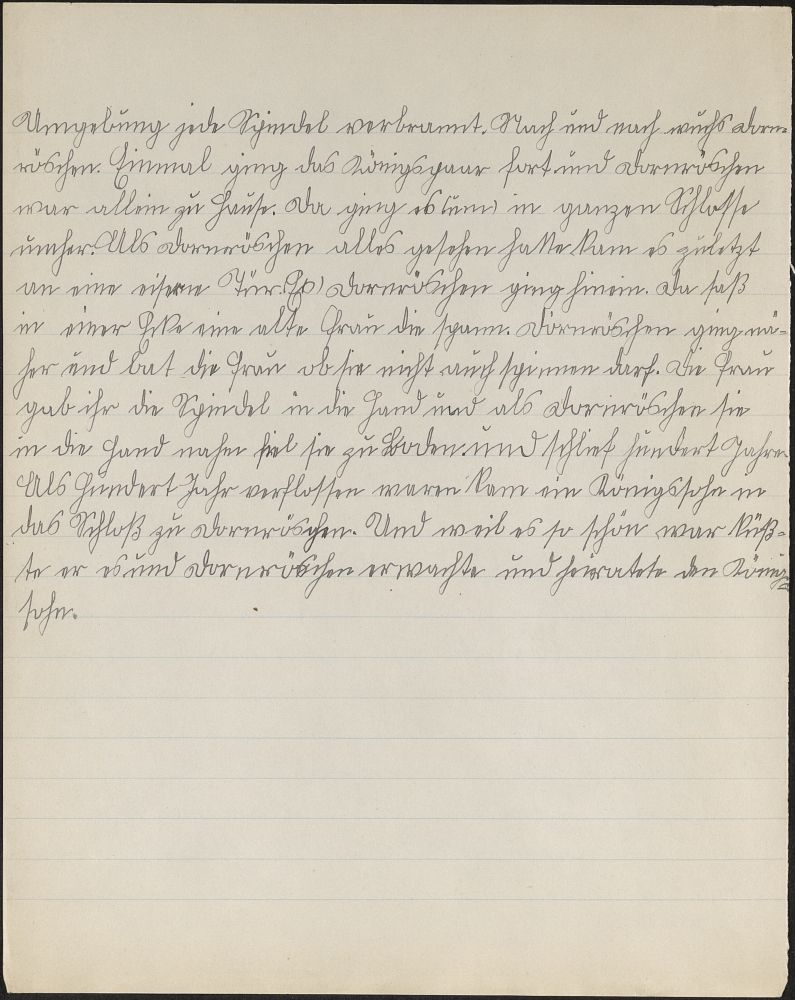 Umgebung jede Spindel verbrannt. Nach und nach wuchs Dorn=
röschen. Einmal ging das Königspaar fort und Dornröschen
war allein zu Hause. Da ging es (um) in ganzen Schlosse
umher. Als Dornröschen alles gesehen hatte kam es zuletzt
an eine eiserne Tür. (Es) Dornröschen ging hinein. Da saß
in einer Ecke eine alte Frau die spann. Dornröschen ging nä=
her und bat die Frau ob sie nicht auch spinnen darf. Die Frau
gab ihr die Spindel in die Hand und als Dornröschen sie
in die Hand nahm fiel sie zu Boden und schlief hundert Jahre.
Als hundert Jahr verflossen waren kam ein Königssohn in
das Schloß zu Dornröschen. Und weil es so schön war küß=
te er es und Dornröschen erwachte und heiratete den König=
sohn.